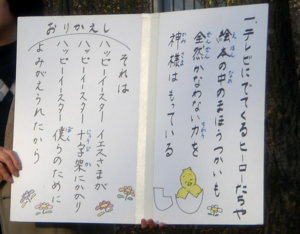 一、テレビにでてくるヒーローたちや
絵本の中のまほうつかいも
全然かなわない力を
神様はもっている
おりかえし
それは
ハッピーイースター イエスさまが
ハッピーイースター 十字架にかかり
ハッピーイースター 僕らのために
よみがえられたから